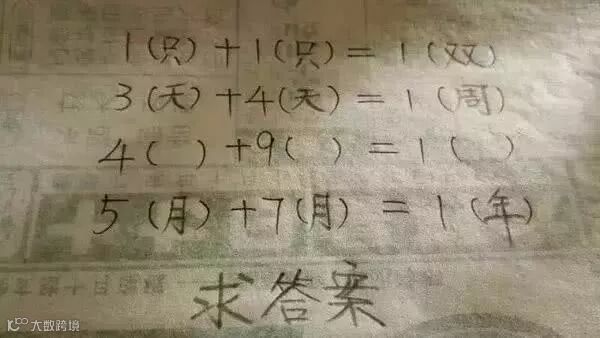 1(只)+1(只)=1(双)
3(天)+4(天)=1(周)
4( )+9( )=1( )
5(月)+7(月)=1(年)
求答案
大数跨境